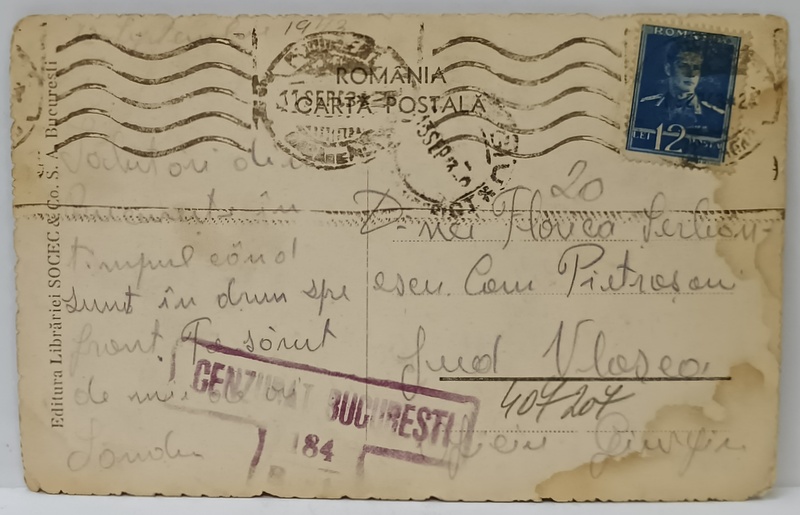 1943
ROMANIA
CARTA POSTALĂ
ROMANIA
LEI 12
Editura Librăriei SOCEC & Co. S. A. București
Salutări din
București în
timpul când
sunt în drum spre
front. Te sărut
de mii de ori
Sandu
20
D-nei Florica Serban-
escu. Com Pietroșani
Jud Vlașca
407207
CENZURAT BUCUREȘTI
184